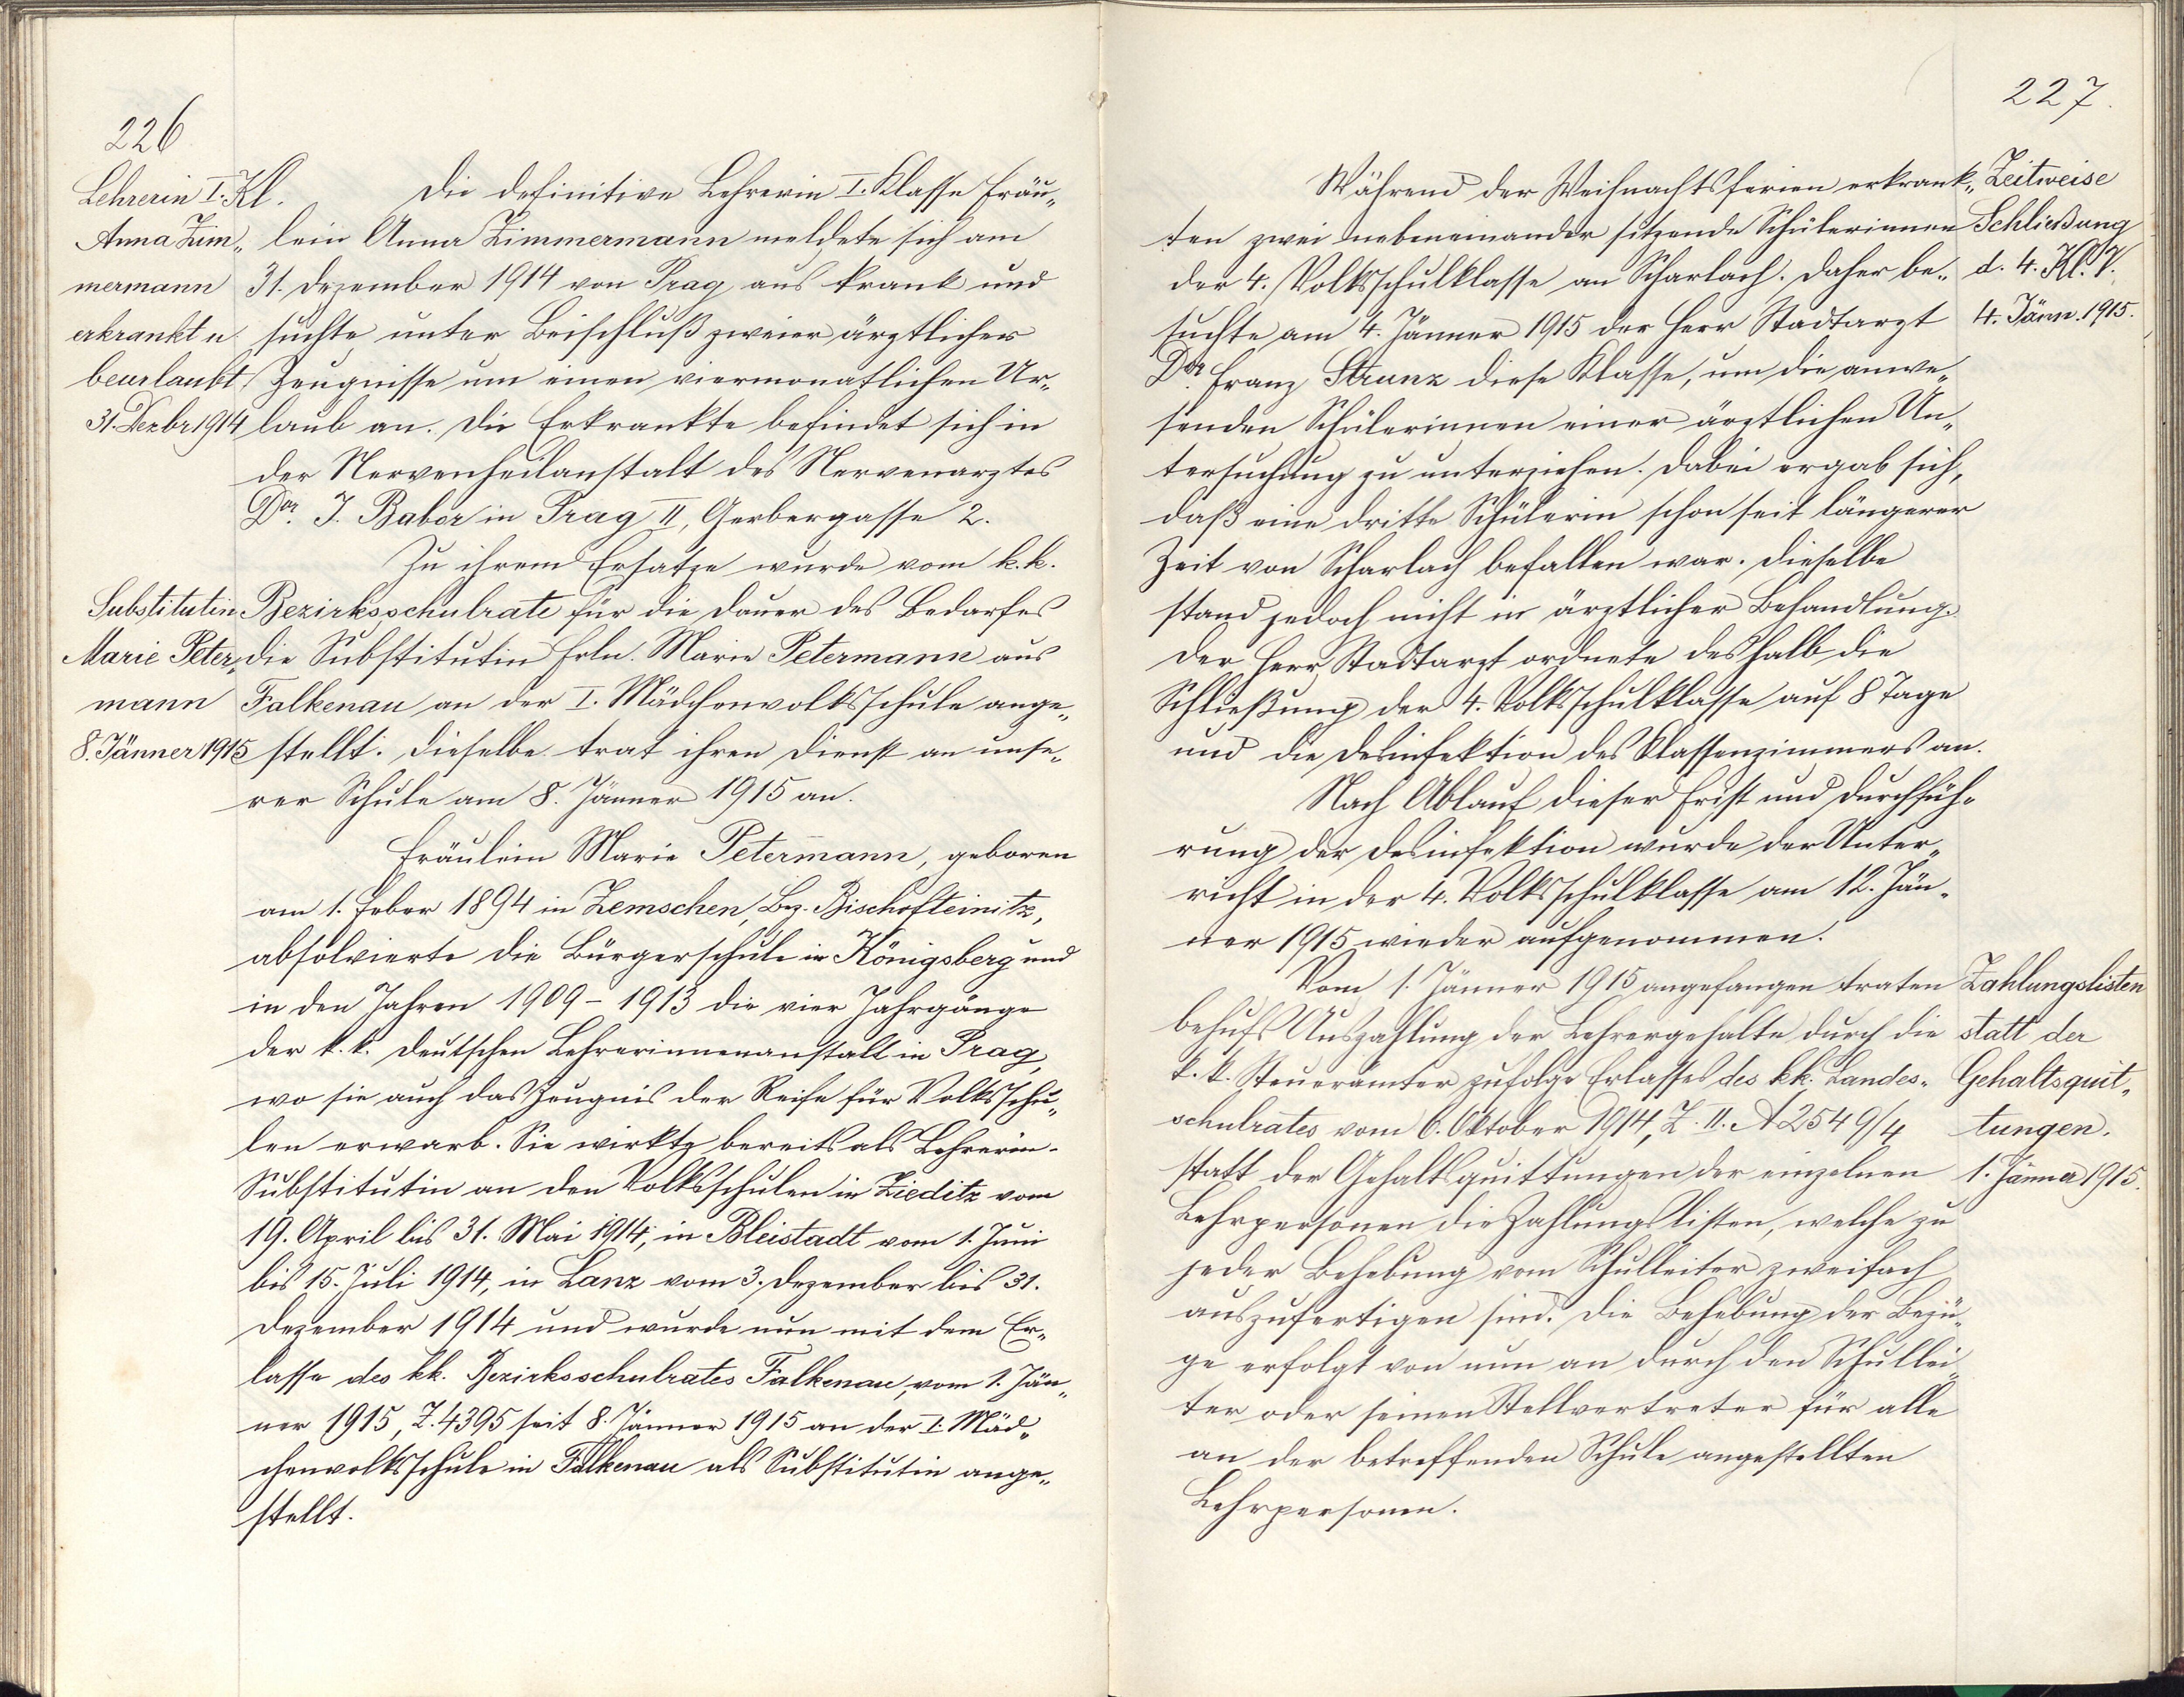 226
Lehrerin I. Kl.
Anna Zim„
mermann
erkrankt u
beurlaubt
31. Dezbr 1914
Die definitive Lehrerin I. Klasse Fräu„
lein Anna Zimmermann meldete sich am
31. Dezember 1914 von Prag aus krank und
suchte unter Beischluß zweier ärztlicher
Zeugnisse um einen viermonatlichen Ur„
laub an. Die Erkrankte befindet sich in
der Nervenheilanstalt des Nervenarztes
Dor. J. Babor in Prag II, Gerbergasse 2.
Substitutin
Marie Peter„
mann
8. Jänner 1915
Zu ihrem Ersatze wurde vom k. k.
Bezirksschulrate für die Dauer des Bedarfes
die Substitutin Frln. Marie Petermann aus
Falkenau an der I. Mädchenvolksschule ange„
stellt. Dieselbe trat ihren Dienst an unse„
rer Schule am 8. Jänner 1915 an.
Fräulein Marie Petermann, geboren
am 1. Feber 1894 in Zemschen, Bez. Bischofteinitz,
absolvierte die Bürgerschule in Königsberg und
in den Jahren 1909 – 1913 die vier Jahrgänge
der k. k. deutschen Lehrerinnenanstalt in Prag,
wo sie auch das Zeugnis der Reife für Volksschu„
len erwarb. Sie wirkte bereits als Lehrerin-
Substitutin an den Volksschulen in Zieditz vom
19. April bis 31. Mai 1914, in Bleistadt vom 1. Juni
bis 15. Juli 1914, in Lanz vom 3. Dezember bis 31.
Dezember 1914 und wurde nun mit dem Er„
lasse des kk. Bezirksschulrates Falkenau, vom 1. Jän„
ner 1915, Z. 4395 seit 8. Jänner 1915 an der I. Mäd„
chenvolksschule in Falkenau als Substitutin ange„
stellt.
227.
Während der Weihnachtsferien erkrank„
ten zwei nebeneinander sitzende Schülerinnen
der 4. Volksschulklasse an Scharlach. Daher be„
suchte am 4. Jänner 1915 der Herr Stadtarzt
Dor. Franz Strunz diese Klasse, um die anwe„
senden Schülerinnen einer ärztlichen Un„
tersuchung zu unterziehen. Dabei ergab sich,
daß eine dritte Schülerin schon seit längerer
Zeit von Scharlach befallen war. Dieselbe
stand jedoch nicht in ärztlicher Behandlung.
Der Herr Stadtarzt ordnete deshalb die
Schließung der 4. Volksschulklasse auf 8 Tage
und die Desinfektion des Klassenzimmers an.
Zeitweise
Schließung
d. 4. Kl.
4. Jänn. 1915.
Nach Ablauf dieser Frist und Durchfüh„
rung der Desinfektion wurde der Unter„
richt in der 4. Volksschulklasse am 12. Jän„
ner 1915 wieder aufgenommen.
Vom 1. Jänner 1915 angefangen traten
behufs Auszahlung der Lehrergehalte durch die
k. k. Steuerämter zufolge Erlasses des kk. Landes„
schulrates vom 6. Oktober 1914, Z. II. A 2549/4
statt der Gehaltsquittungen der einzelnen
Lehrpersonen die Zahlungslisten, welche zu
jeder Behebung vom Schulleiter zweifach
auszufertigen sind. Die Behebung der Bezü„
ge erfolgt von nun an durch den Schullei„
ter oder seinen Stellvertreter für alle
an der betreffenden Schule angestellten
Lehrpersonen.
Zahlungslisten
statt der
Gehaltsquit„
tungen.
1. Jänner 1915.